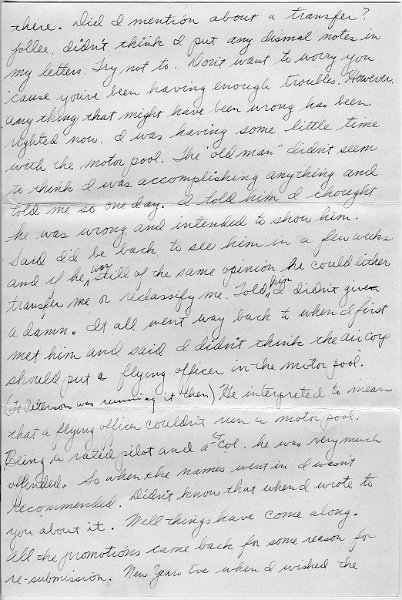 there. Did I mention about a transfer?
Jollee, didn't think I put any dismal notes in
my letters. Try not to. Don't want to worry you
'cause you've been having enough troubles. However,
anything that might have been wrong has been
righted now. I was having some little time
with the motor pool. The "old man" didn't seem
to think I was accomplishing anything and
told me so one day. I told him I thought
he was wrong and intended to show him.
Said I'd be back to see him in a few weeks
and if he was still of the same opinion he could either
transfer me or reclassify me. Told him I didn't give
a damn. It all went way back to when I first
met him and said I didn't think the air corp
should put a flying officer in the motor pool.
(Lt Peterson was running it then) He interpreted to mean
that a flying officer couldn't run a motor pool.
Being a rated pilot and a Lt Col. he was very much
offended. So when the names went in I wasn't
recommended. Didn't know that when I wrote to
you about it. Well things have come along.
All the promotions came back for some reason for
re-submission. New Years Eve when I wished the